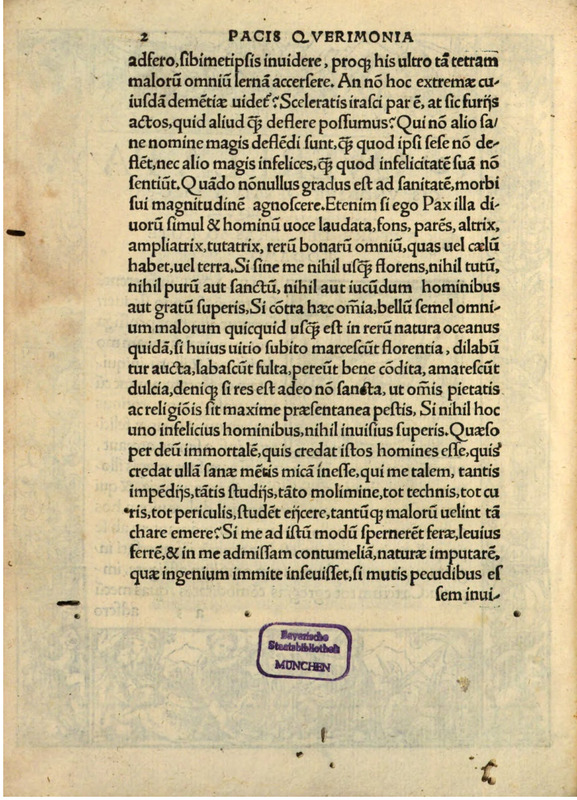 2 PACIS QVERIMONIA
adfero, sibimetipsis inuidere, proq; his ultro tã tetram
malorũ omniũ lernã accersere. An nõ hoc extremæ cu-
iusdã demẽtiæ uidet? Sceleratis irasci par ẽ, at sic furijs
actos, quid aliud q̃ȝ deflere possumus? Qui nõ alio sa/
ne nomine magis deflẽdi sunt, q̃ȝ quod ipsi sese nõ de-
flẽt, nec alio magis infelices, q̃ȝ quod infelicitatẽ suã nõ
sentiũt. Quãdo nõnullus gradus est ad sanitatẽ, morbi
sui magnitudinẽ agnoscere. Etenim si ego Pax illa di-
uorũ simul & hominũ uoce laudata, fons, parẽs, altrix,
ampliatrix, tutatrix, rerũ bonarũ omniũ, quas uel cælũ
habet, uel terra. Si sine me nihil usq̃ȝ florens, nihil tutũ,
nihil purũ aut sanctũ, nihil aut iucũdum hominibus
aut gratũ superis, Si cõtra hæc om̃ia, bellũ semel omni-
um malorum quicquid usq̃ȝ est in rerũ natura oceanus
quidã, si huius uitio subito marcescũt florentia, dilabũ
tur aucta, labascũt fulta, pereũt bene cõdita, amarescũt
dulcia, deniq; si res est adeo nõ sancta, ut om̃is pietatis
ac religiõis sit maxime præsentanea pestis, Si nihil hoc
uno infelicius hominibus, nihil inuisius superis. Quæso
per deũ immortalẽ, quis credat istos homines esse, quis
credat ullã sanæ mẽtis micã ínesse, qui me talem, tantis
impẽdijs, tãtis studijs, tãto molimine, tot technis, tot cu
ris, tot periculis, studẽt eijcere, tantũq; malorũ uelint tã
chare emere? Si me ad istũ modũ spernerẽt feræ, leuius
ferrẽ, & in me admissam contumeliã, naturæ imputarẽ,
quæ ingenium immite inseuisset, si mutis pecudibus es
sem inui-
Bayerische
Staatsbibliothek
MÜNCHEN